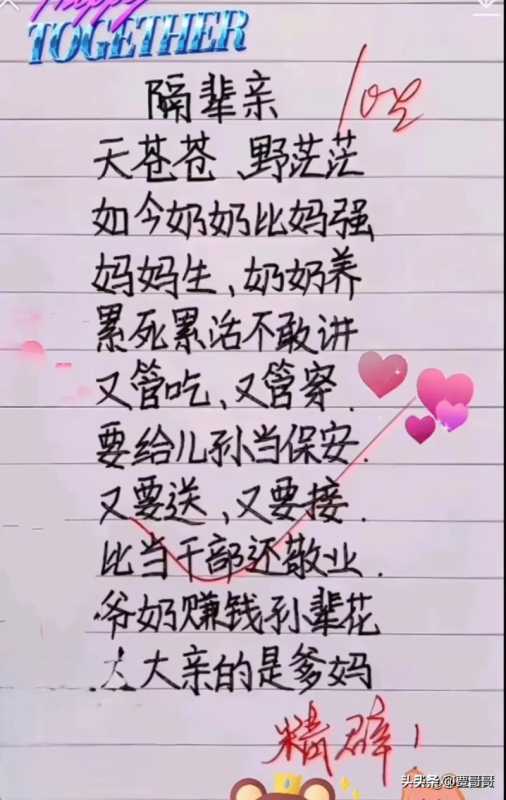 Happy
TOGETHER
隔辈亲
天苍苍、野茫茫
如今奶奶比妈强
妈妈生、奶奶养
累死累活不敢讲
又管吃、又管穿.
要给儿孙当保安.
又要送,又要接.
比当干部还敬业.
爷奶赚钱孙辈花
大亲的是爹妈
精辟!
头条@贾哥哥